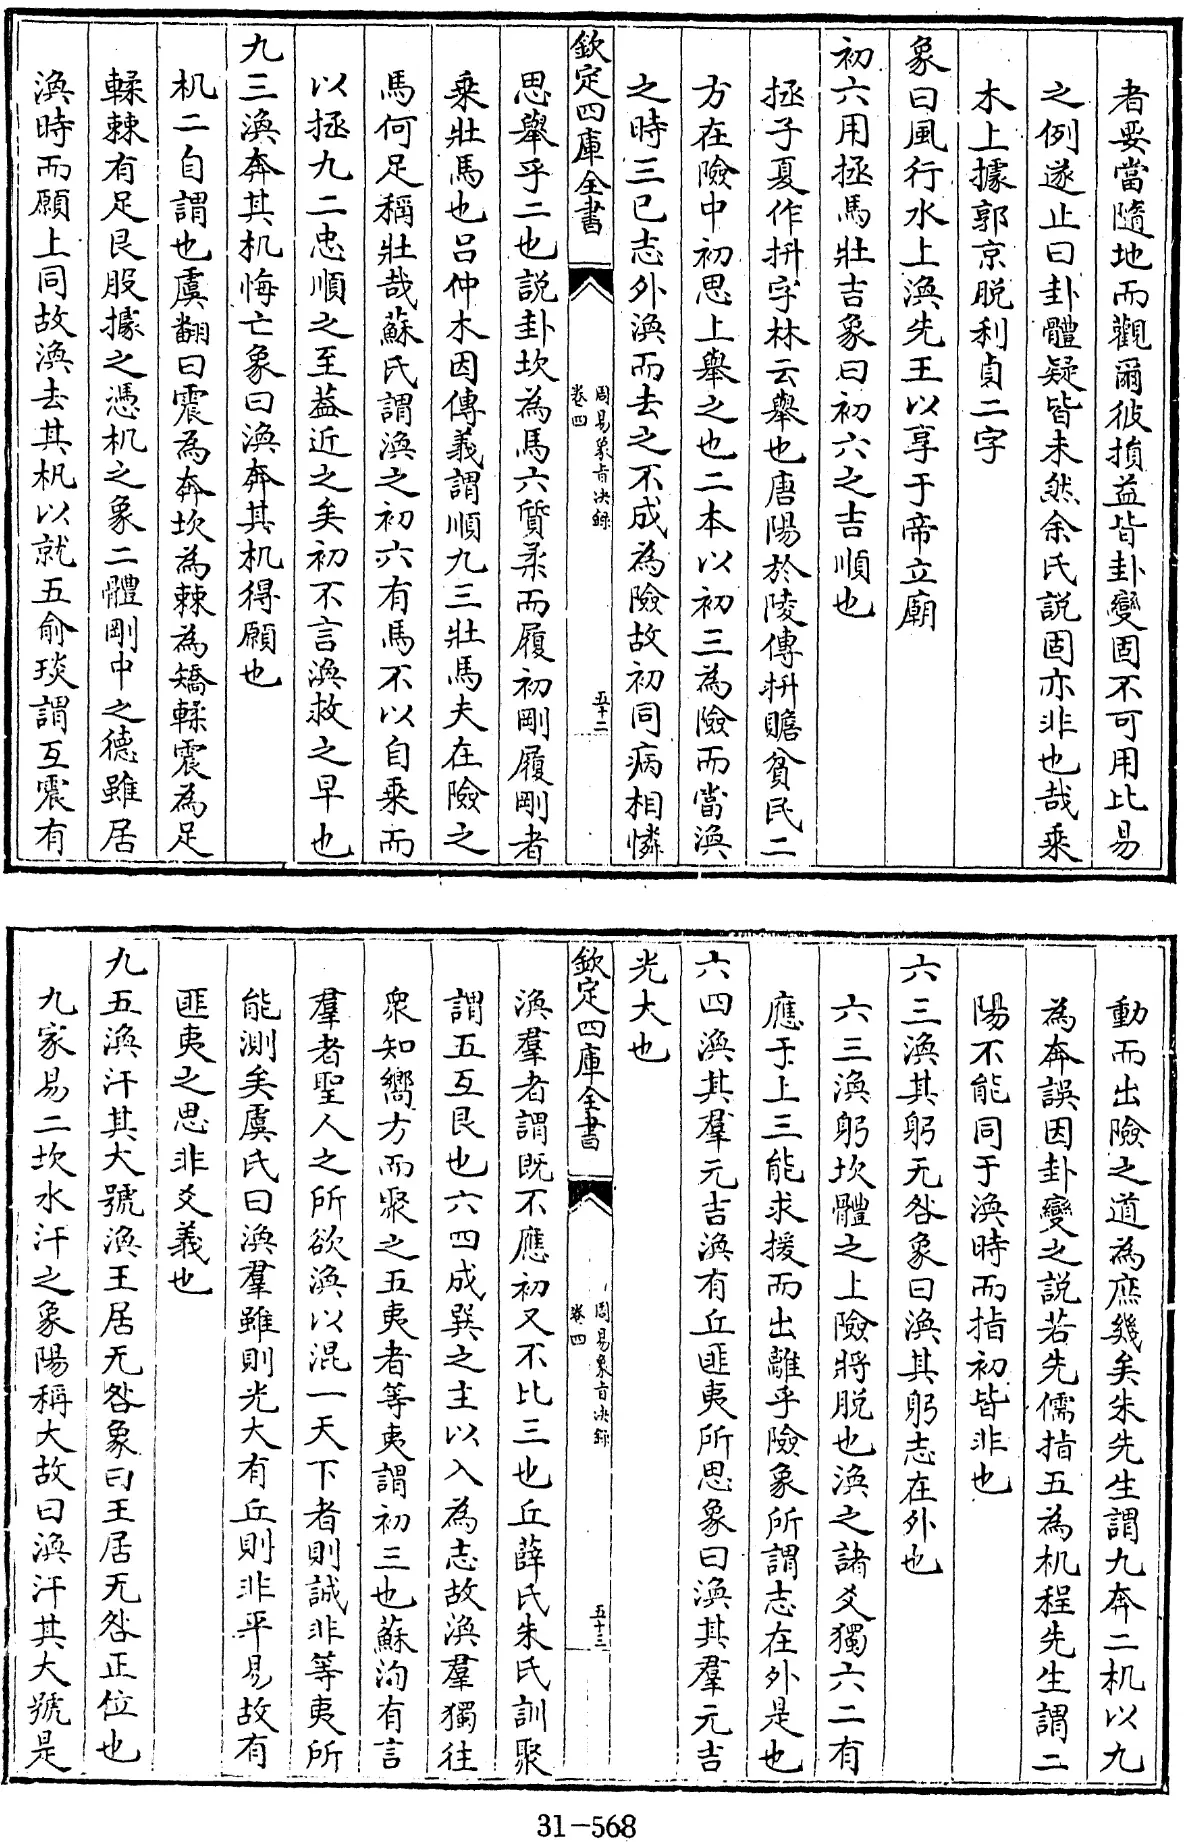 者妥當隨地而觀爾彼損益皆卦變固不可用比易
之例遂止曰卦體疑皆未然余氏說固亦非也哉乘
木上據郭京脱利貞二字
象曰風行水上渙先王以享于帝立廟
初六用拯馬壯吉象曰初六之吉順也
拯子夏作抍字林云舉也唐陽於陵傳抍贍貧民二
方在險中初思上舉之也二本以初三為險而當渙
之時三已志外渙而去之不成為險故初同病相憐
欽定四庫全書
周易象旨決錄
卷四
五十二
思舉乎二也説卦坎為馬六質柔而履初剛履剛者
乘壯馬也呂仲木因傳義謂順九三壯馬夫在險之
馬何足稱壯哉蘇氏謂渙之初六有馬不以自乘而
以拯九二忠順之至葢近之矣初不言渙救之早也
九三渙奔其机悔亡象曰渙奔其机得願也
机二自謂也虞翻曰震為奔坎為棘為矯輮震為足
輮棘有足艮股據之憑机之象二體剛中之德雖居
渙時而願上同故渙去其机以就五俞琰謂互震有
動而出險之道為庶幾矣朱先生謂九奔二机以九
為奔誤因卦變之説若先儒指五為机程先生謂二
陽不能同于渙時而指初皆非也
六三渙其躬无咎象曰渙其躬志在外也
六三渙躬坎體之上險將脱也渙之諸爻獨六二有
應于上三能求援而出離乎險象所謂志在外是也
六四渙其羣元吉渙有丘匪夷所思象曰渙其羣元吉
光大也
欽定四庫全書
周易象旨決錄
卷四
五十三
渙羣者謂既不應初又不比三也丘薛氏朱氏訓聚
謂五互艮也六四成巽之主以入為志故渙羣獨往
衆知嚮方而聚之五夷者等夷謂初三也蘇洵有言
羣者聖人之所欲渙以混一天下者則誠非等夷所
能測矣虞氏曰渙羣雖則光大有丘則非平易故有
匪夷之思非爻義也
九五渙汗其大號渙王居无咎象曰王居无咎正位也
九家易二坎水汗之象陽稱大故曰渙汗其大號是
31-568